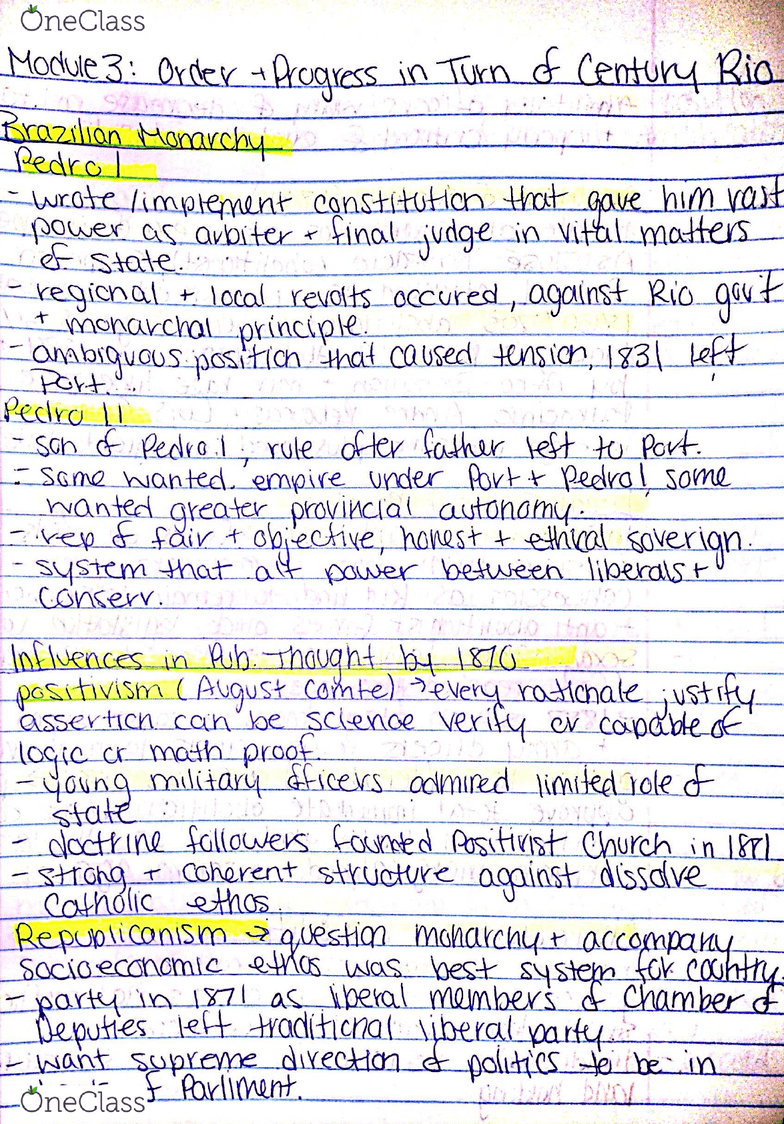 OneClass
Module 3: Order + Progress in Turn of Century Rio
Brazilian Monarchy
Pedro I
- wrote / implement constitution that gave him vast
power as arbiter + final judge in vital matters
of state.
- regional + local revolts occured, against Rio gov't
+ monarchal principle.
- ambiguous position that caused tension, 1831 left
Port.
Pedro II
- son of Pedro I, rule after father left to Port.
- some wanted empire under Port + Pedro I, some
wanted greater provincial autonomy.
- rep of fair + objective, honest + ethical soverign.
- system that alt power between liberals +
conserv.
Influences in Pub. Thought by 1870
positivism (August Comte) → every rationale justify
assertion can be science verify or capable of
logic or math proof
- young military officers admired limited role of
state
- doctrine followers founded Positivist Church in 1871
- strong + coherent structure against dissolve
Catholic ethos.
Republicanism → question monarchy + accompany
socioeconomic ethos was best system for country.
- party in 1871 as liberal members of Chamber of
Deputies left traditional liberal party.
- want supreme direction of politics to be in
f Parliment.
OneClass